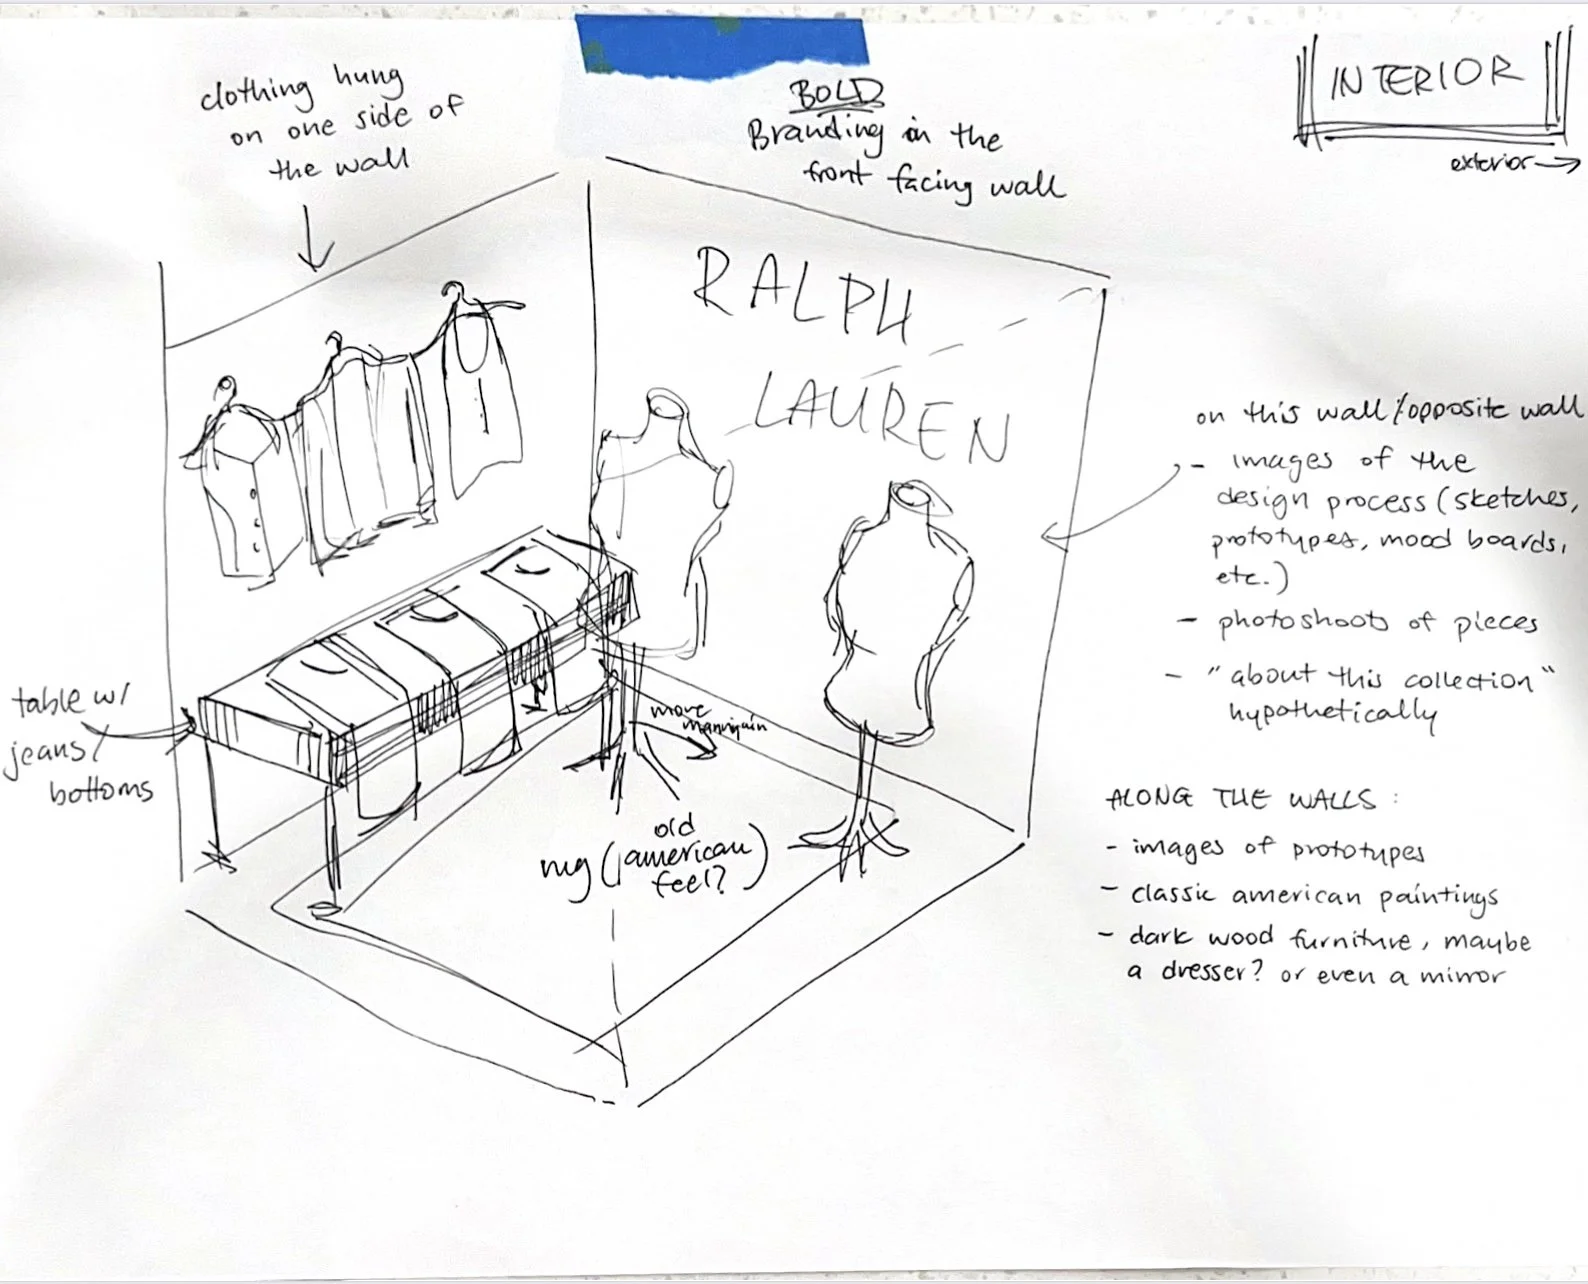 clothing hung
on one side of
the wall
BOLD
Branding in the
front facing wall
INTERIOR
exterior →
RALPH
LAUREN
on this wall/opposite wall
- images of the
design process (sketches,
prototypes, mood boards,
etc.)
- photoshoots of pieces
- "about this collection"
hypothetically
table w/
jeans/
bottoms
more
manniquin
old
rug (american
feel?)
ALONG THE WALLS :
- images of prototypes
- classic american paintings
- dark wood furniture, maybe
a dresser? or even a mirror